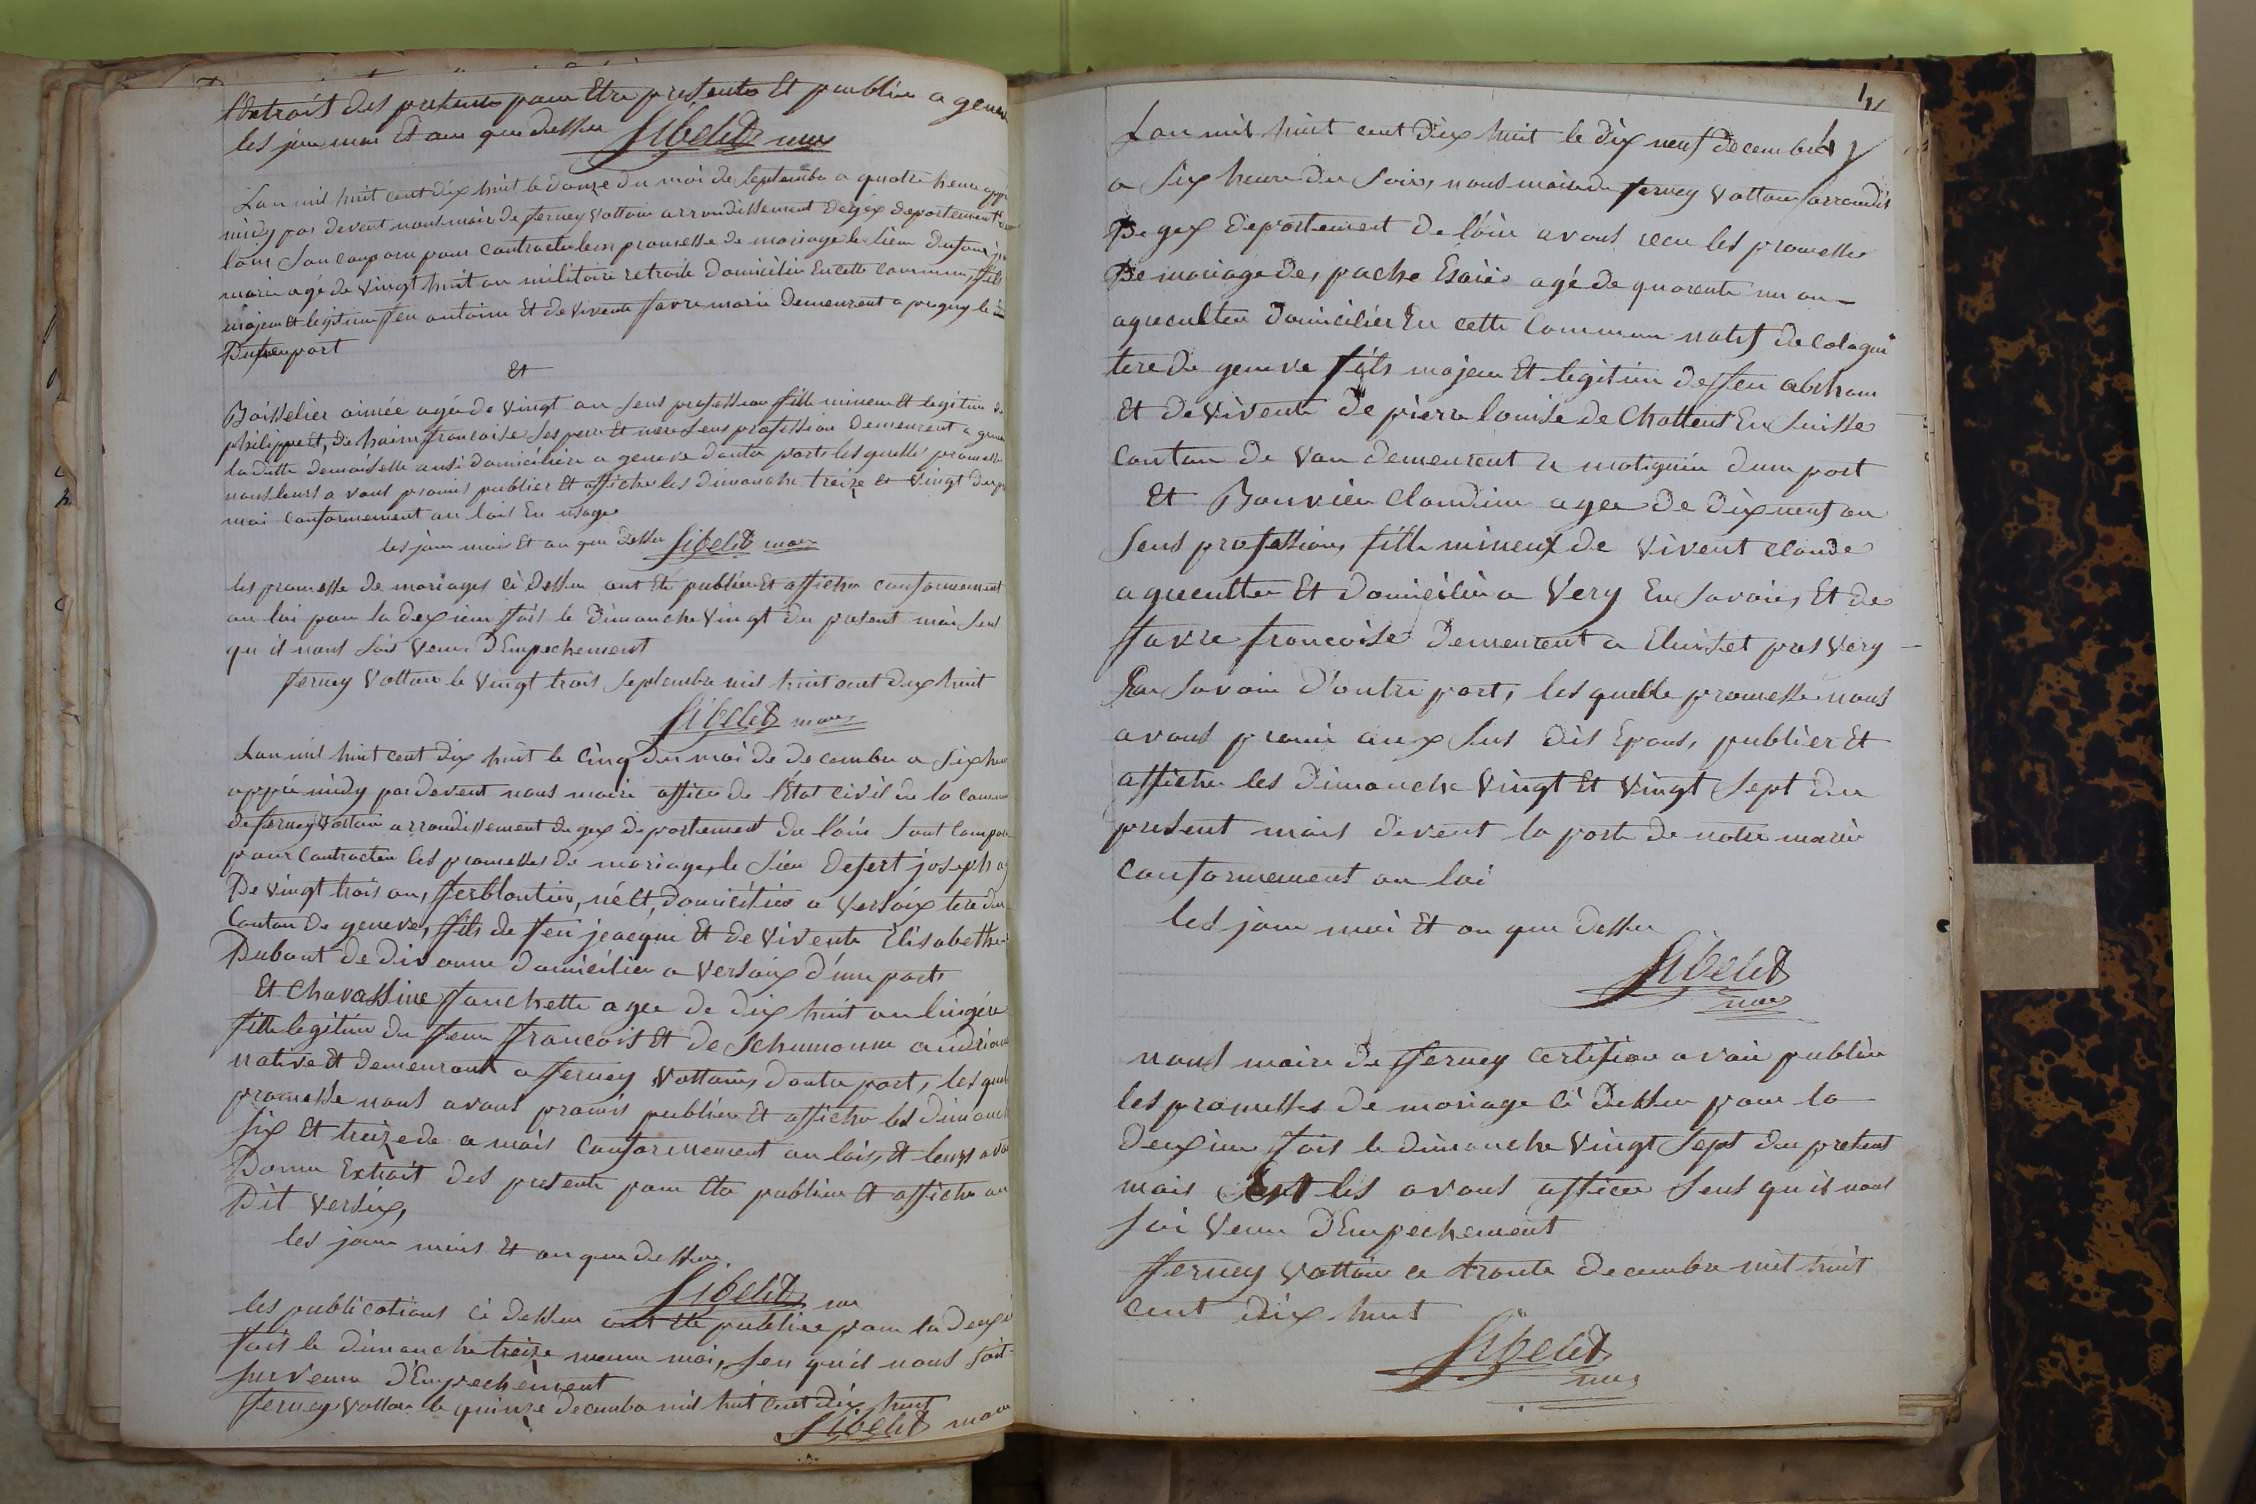 l'Extrait des presente pour Etre presente Et publier a genev
les jour moi Et an que dessu Sibelet mair
Lan mil huit cent dix huit le Douze du moi de septembre a quatre heure appré
midy par devent nous mair de ferney Vottair arrondissement degex departement de
lain son comparu pour contracter leur promesse de mariage le sieur Dufour
marie agé de vingt huit an militaire retraite domicilié En cette commune, fils
majeur Et legitime feu antoine Et de vivente favre marie Demeurent a pregny le
D'une part
Et
Boisselier aimée agée de vingt an sens profession fille mineur Et legitime de
philippe Et, de haim francoise ses pere Et mere sens profession Demeurent a geneve
laditte demoiselle ausi domicilier a geneve dautre parts lesquelle promesse
nous leurs avons promis publier Et afficher les dimanche treize et vingt du p
moi conformement au lois En usage
les jour mois Et an que dessu Sibelet mair
les promesse de mariages ci dessu ont Eté publier Et afficher conformement
au loi pour la dexieme fois le Dimanche vingt du present mois sens
qu il nous soit venu D'Empechement
ferney Vottair le vingt trois septembre mil huit cent dix huit
Sibelet mair
Lan mil huit cent dix huit le cinq du moi de decembre a six heur
appré midy par devent nous maire officer de l'Etat civil de la commune
de ferney Vottair arrondissement de gex departement de l'ain sont compar
pour contracter les promesses de mariage, le sieur Desert joseph ag
De vingt trois an, ferblantier, né Et, domicilier a Versoix tere du
Canton De geneve, fils de feu jeacque Et de vivente Elisabethe
Dubout de divonne domicilier a Versoix d'une part
Et Chavassine fanchette agee de dix huit an lingére
fille legitime de feu francois Et de Schumonne andrian
native Et demeurant a ferney Vottair, dautre part, les quel
promesse nous avons promis publier Et afficher les dimanch
six Et treize de ce mois conformement au lois, Et leurs avon
Donner Extrait des presente pour Etre publier Et afficher au
Dit Versoix,
les jour mois Et an que dessu
Sibelet mair
les publications ci dessu ont Eté publiee pour la deuxi
fois le dimanche treize meme moi, sen qu'il nous soit
survenu d'Empechement
ferney Vottair le quinze decembre mil huit cent dix huit
Sibelet mair
Lan mil huit cent dix huit le dix neuf decembre
a six heure du soir, nous maire de ferney Vottair arrondis
De gex departement de l'ain avons recu les promesse
De mariage de, pache Esaie agé de quarente un an
agreculteur domicilier En cette commune natif de Cologni
tere de geneve fils majeur Et legitime de feu abrham
Et de vivente de pierre louise de Chattent En suisse
Canton de Vau demeurent a matignin d'une part
Et Bouvier Claudine agee de dix neuf an
sens profession, fille mineux de vivent claude
agreculteur Et domicilier a Very En savoie, Et de
favre francoise demeurent a Eluiset pres Very
En savoie d'autre part, les quelle promesse nous
avons promi aux sus dit Epous, publier Et
afficher les dimanche vingt Et vingt sept du
present mois devent la porte de notre mairie
conformement au loi
les jour moi Et an que dessu
Sibelet
mair
nous maire de ferney certifion avoir publier
les promesses de mariage ci dessu pour la
deuxieme fois le dimanche vingt sept du present
mois Et les avons afficer sens qu'il nous
soi venu d'Empechement
ferney Vottair ce trente decembre mil huit
cent dix huit
Sibelet
mair